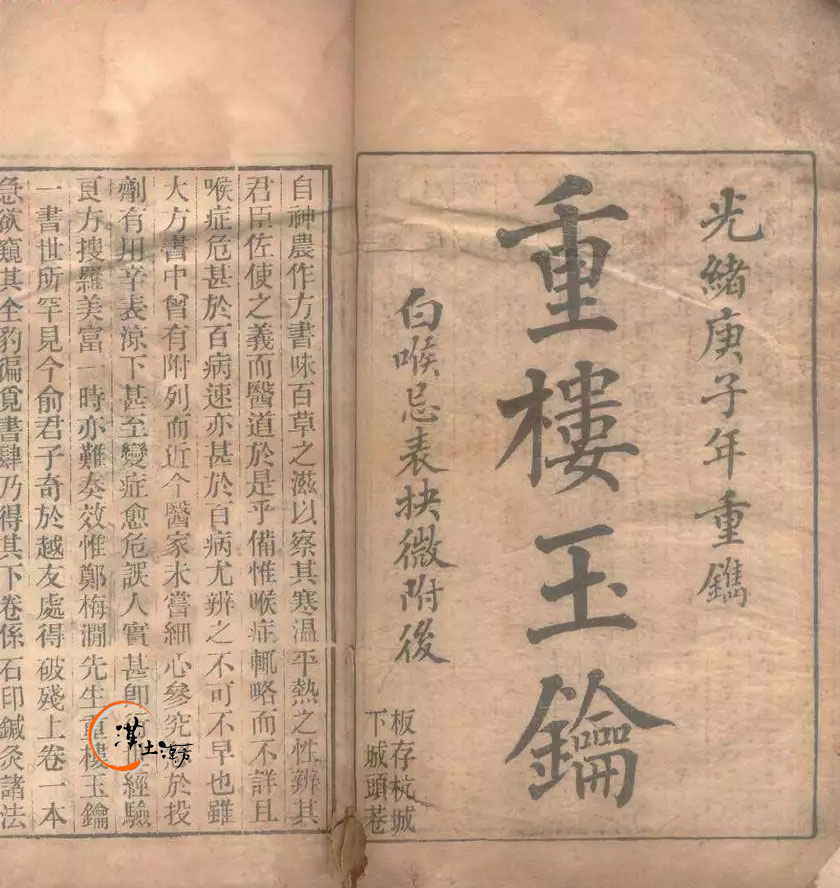 光緒庚子年重鐫
重樓玉鑰
白喉忌表抉微附後
板存杭城
下城頭巷
自神農作方書味百草之滋以察其寒溫平熱之性辨其
君臣佐使之義而醫道於是乎備惟喉症輒略而不詳且
喉症危甚於百病速亦甚於百病尤辨之不可不早也雖
大方書中曾有附列而近今醫家未嘗細心參究於投
劑有用辛表涼下甚至變症愈危誤人實甚卽經驗
良方搜羅美富一時亦難奏效惟鄭梅澗先生重樓玉鑰
一書世所罕見今俞君子奇於越友處得破殘上卷一本
急欲窺其全豹徧覓書肆乃得其下卷係石印鍼灸諸法
漢土淳方